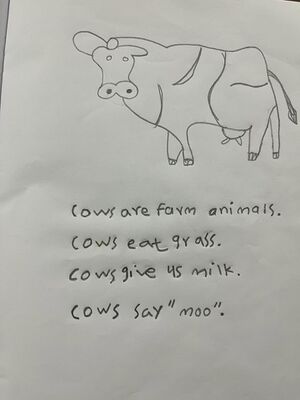 Cows are farm animals.
Cows eat grass.
Cows give us milk.
Cows say "moo".